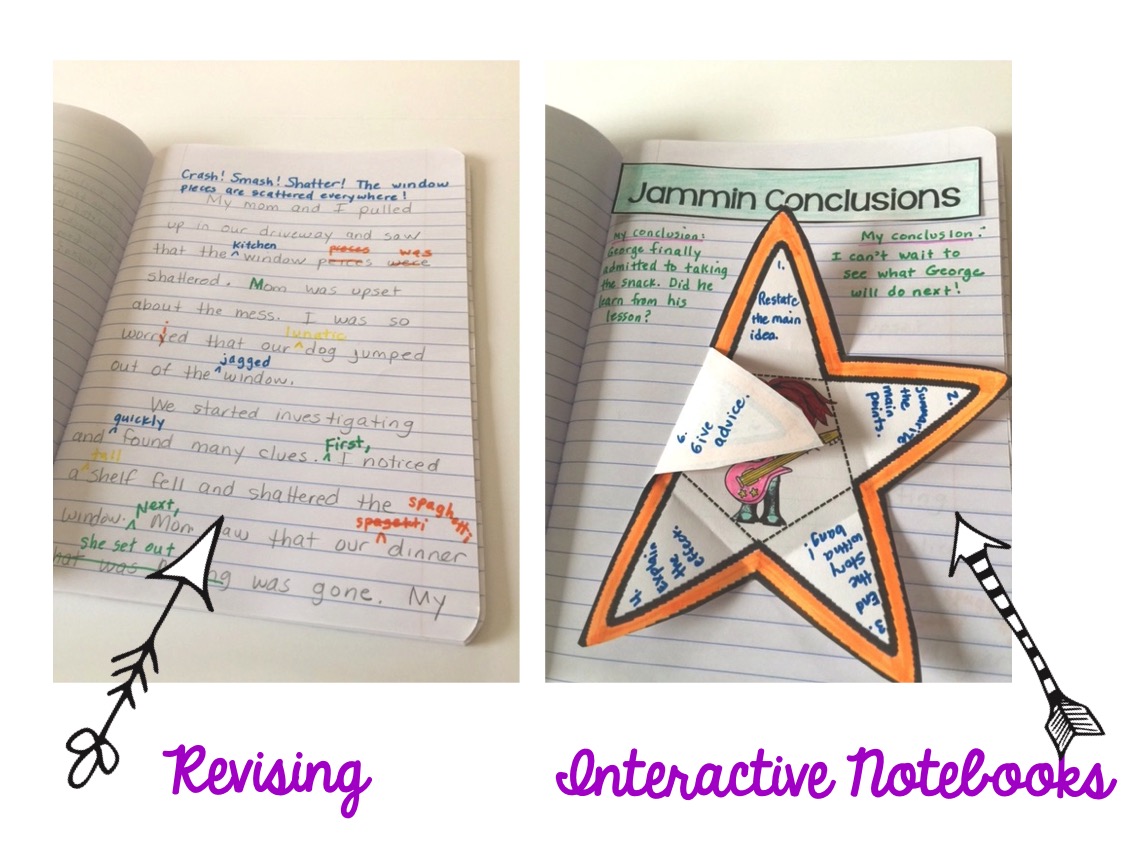 Crash! Smash! Shatter! The window
pieces are scattered everywhere!
My mom and I pulled
up in our driveway and saw
kitchen pieces was
that the ^ window peices were
shattered. Mom was upset
about the mess. I was so
i lunatic
worryed that our ^ dog jumped
jagged
out of the ^ window.
We started investigating
quickly First,
and ^ found many clues. ^ I noticed
tall
a ^ shelf fell and shattered the
Next, spagetti spaghetti
window. ^ Mom saw that our ^ dinner
she set out
that was was gone. My
Jammin Conclusions
My conclusion:
George finally
admitted to taking
the snack. Did he
learn from his
lesson?
My conclusion:
I can't wait to
see what George
will do next!
1.
Restate
the main
idea.
2.
Summarize
the
main
points.
3.
the End
the story
with a
bang!
4.
Explain
the
effect.
6.
Give
advice.
Revising
Interactive Notebooks